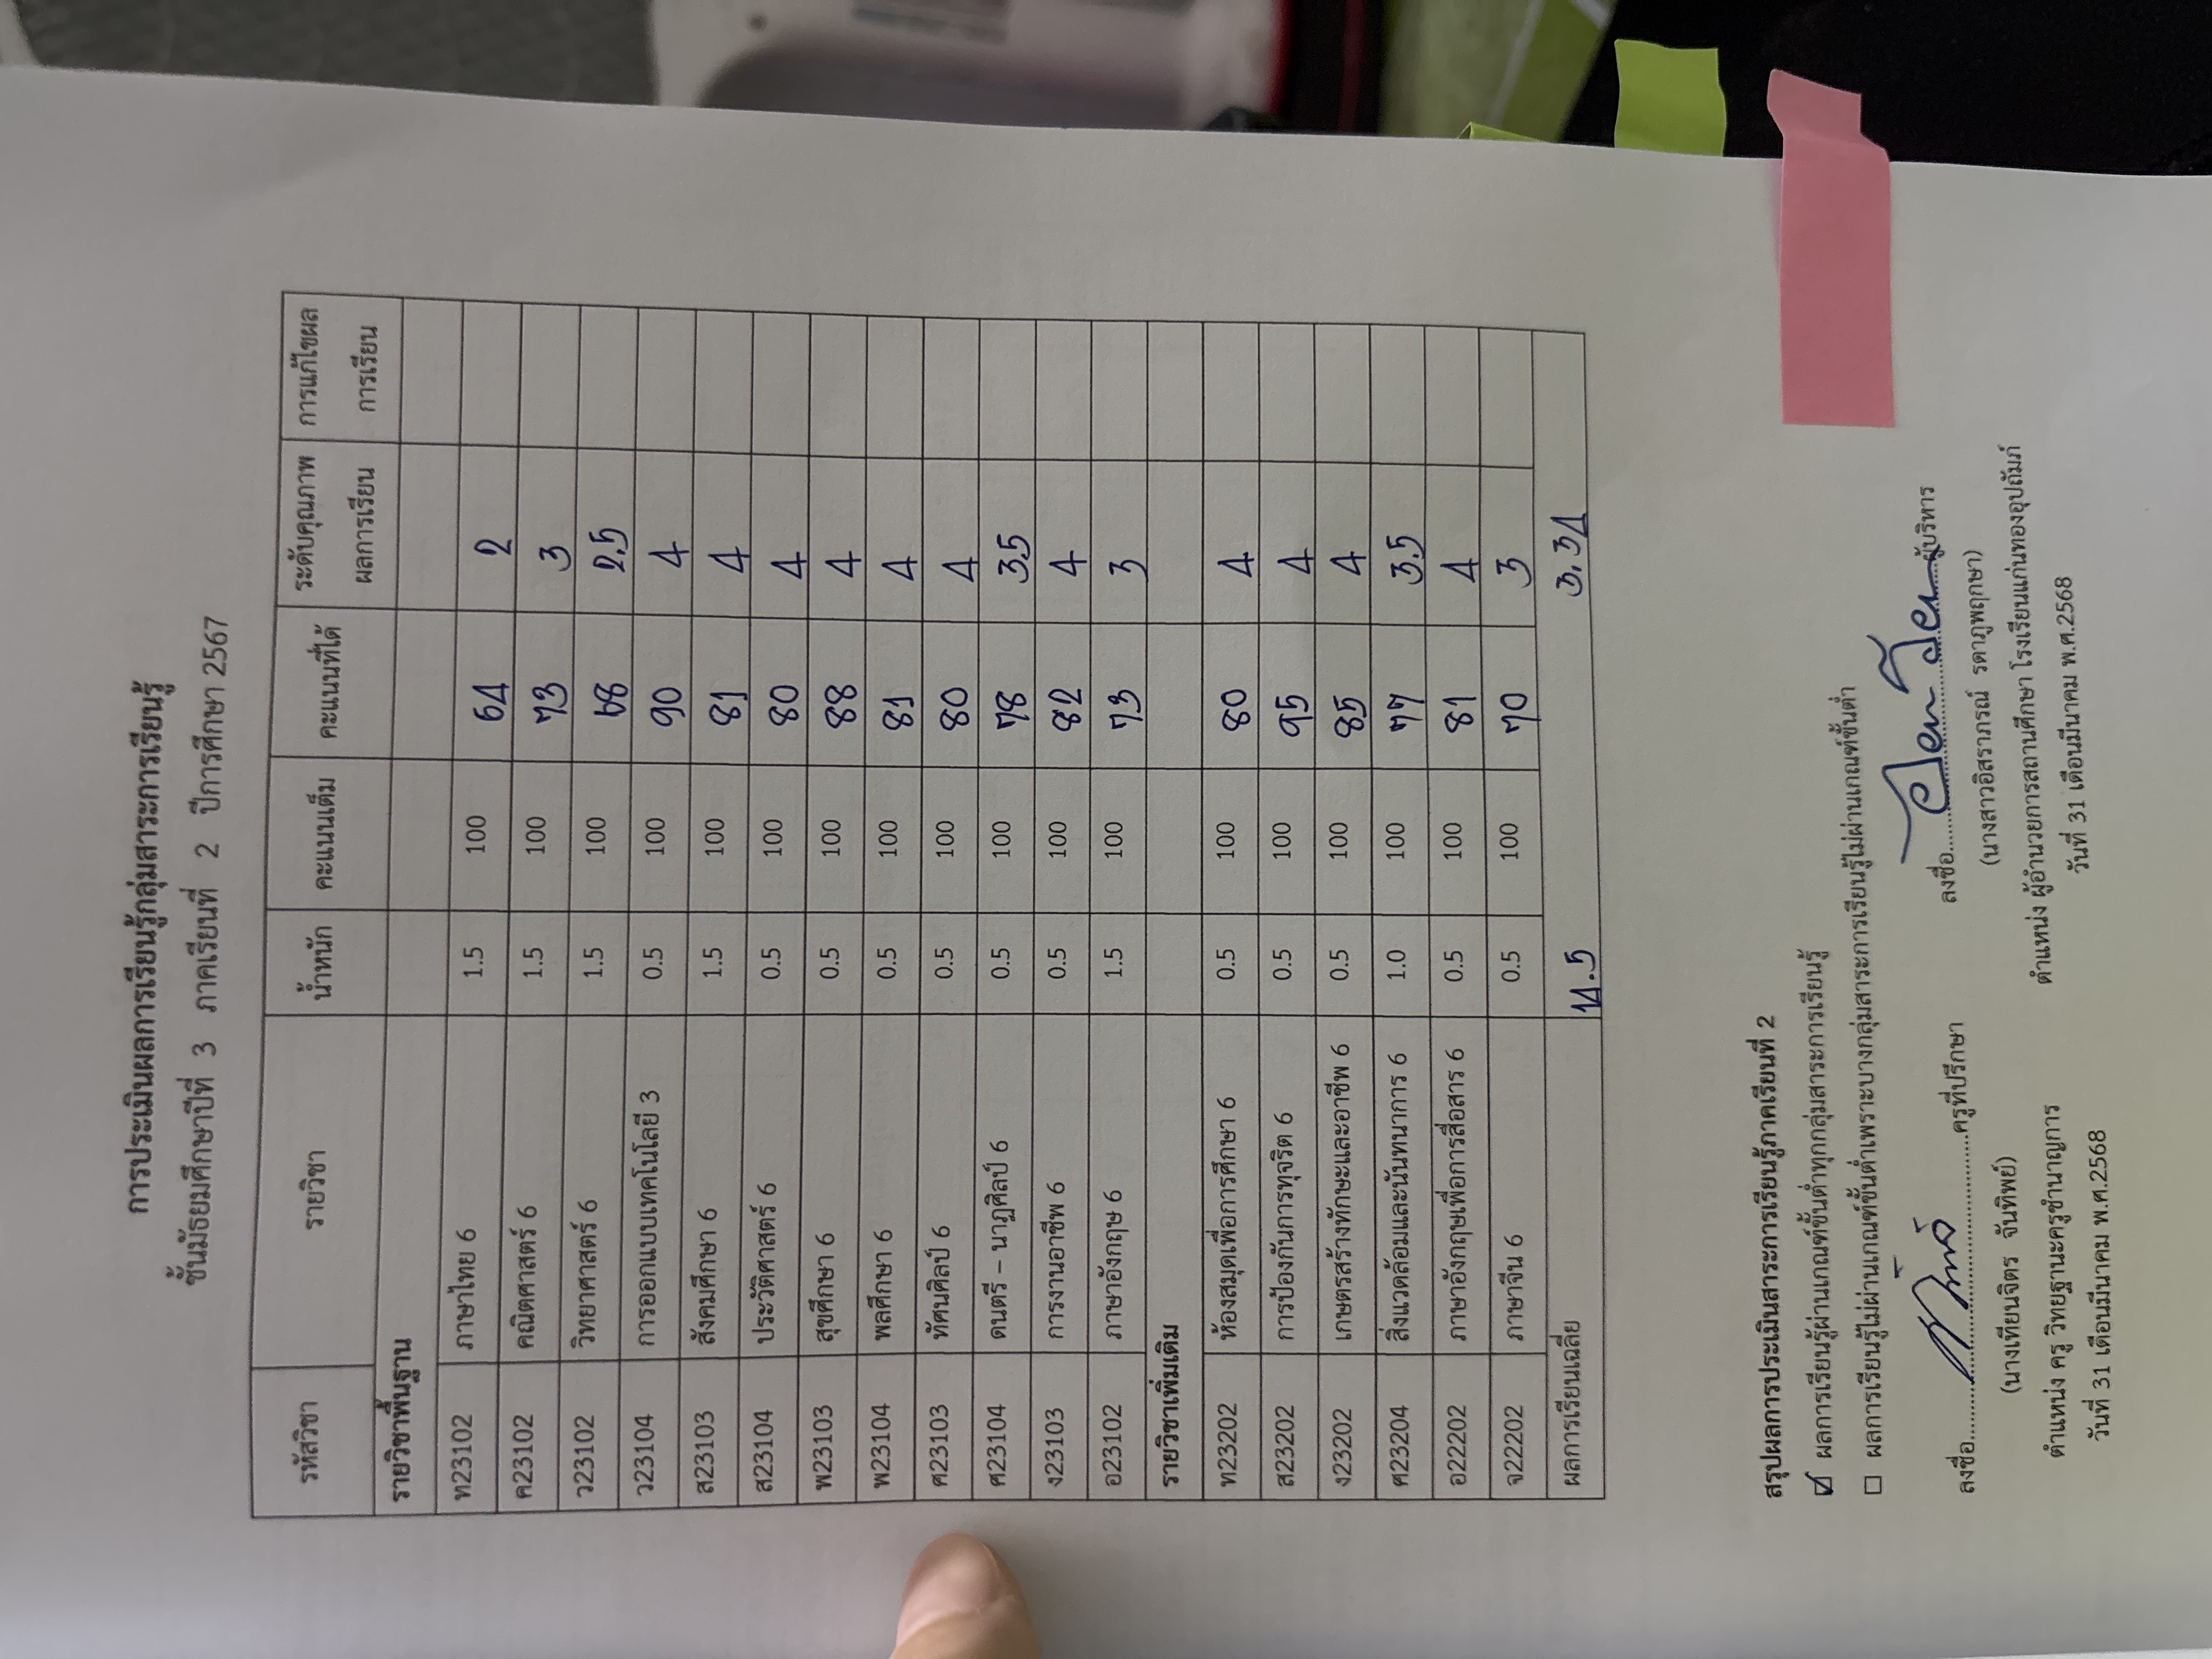 การประเมินผลการเรียนรู้กลุ่มสาระการเรียนรู้
ชั้นมัธยมศึกษาปีที่ 3 ภาคเรียนที่ 2 ปีการศึกษา 2567
รหัสวิชา รายวิชา น้ำหนัก คะแนนเต็ม คะแนนที่ได้ ระดับคุณภาพ ผลการเรียน การแก้ไขผล การเรียน
รายวิชาพื้นฐาน
ท23102 ภาษาไทย 6 1.5 100 64 2
ค23102 คณิตศาสตร์ 6 1.5 100 73 3
ว23102 วิทยาศาสตร์ 6 1.5 100 68 2.5
ว23104 การออกแบบเทคโนโลยี 3 0.5 100 90 4
ส23103 สังคมศึกษา 6 1.5 100 81 4
ส23104 ประวัติศาสตร์ 6 0.5 100 80 4
พ23103 สุขศึกษา 6 0.5 100 88 4
พ23104 พลศึกษา 6 0.5 100 81 4
ศ23103 ทัศนศิลป์ 6 0.5 100 80 4
ศ23104 ดนตรี – นาฏศิลป์ 6 0.5 100 78 3.5
ง23103 การงานอาชีพ 6 0.5 100 82 4
อ23102 ภาษาอังกฤษ 6 1.5 100 73 3
รายวิชาเพิ่มเติม
ท23202 ห้องสมุดเพื่อการศึกษา 6 0.5 100 80 4
ส23202 การป้องกันการทุจริต 6 0.5 100 95 4
ง23202 เกษตรสร้างทักษะและอาชีพ 6 0.5 100 85 4
ศ23204 สิ่งแวดล้อมและนันทนาการ 6 1.0 100 77 3.5
อ22202 ภาษาอังกฤษเพื่อการสื่อสาร 6 0.5 100 81 4
จ22202 ภาษาจีน 6 0.5 100 70 3
ผลการเรียนเฉลี่ย 14.5 3.34
สรุปผลการประเมินสาระการเรียนรู้ภาคเรียนที่ 2
☑ ผลการเรียนรู้ผ่านเกณฑ์ขั้นต่ำทุกกลุ่มสาระการเรียนรู้
☐ ผลการเรียนรู้ไม่ผ่านเกณฑ์ขั้นต่ำเพราะบางกลุ่มสาระการเรียนรู้ไม่ผ่านเกณฑ์ขั้นต่ำ
ลงชื่อ....................ครูที่ปรึกษา
(นางเทียนจิตร จันทิพย์)
ตำแหน่ง ครู วิทยฐานะครูชำนาญการ
วันที่ 31 เดือนมีนาคม พ.ศ.2568
ลงชื่อ....................ผู้บริหาร
(นางสาวอิสราภรณ์ รดาภูพฤกษา)
ตำแหน่ง ผู้อำนวยการสถานศึกษา โรงเรียนแก่นทองอุปถัมภ์
วันที่ 31 เดือนมีนาคม พ.ศ.2568